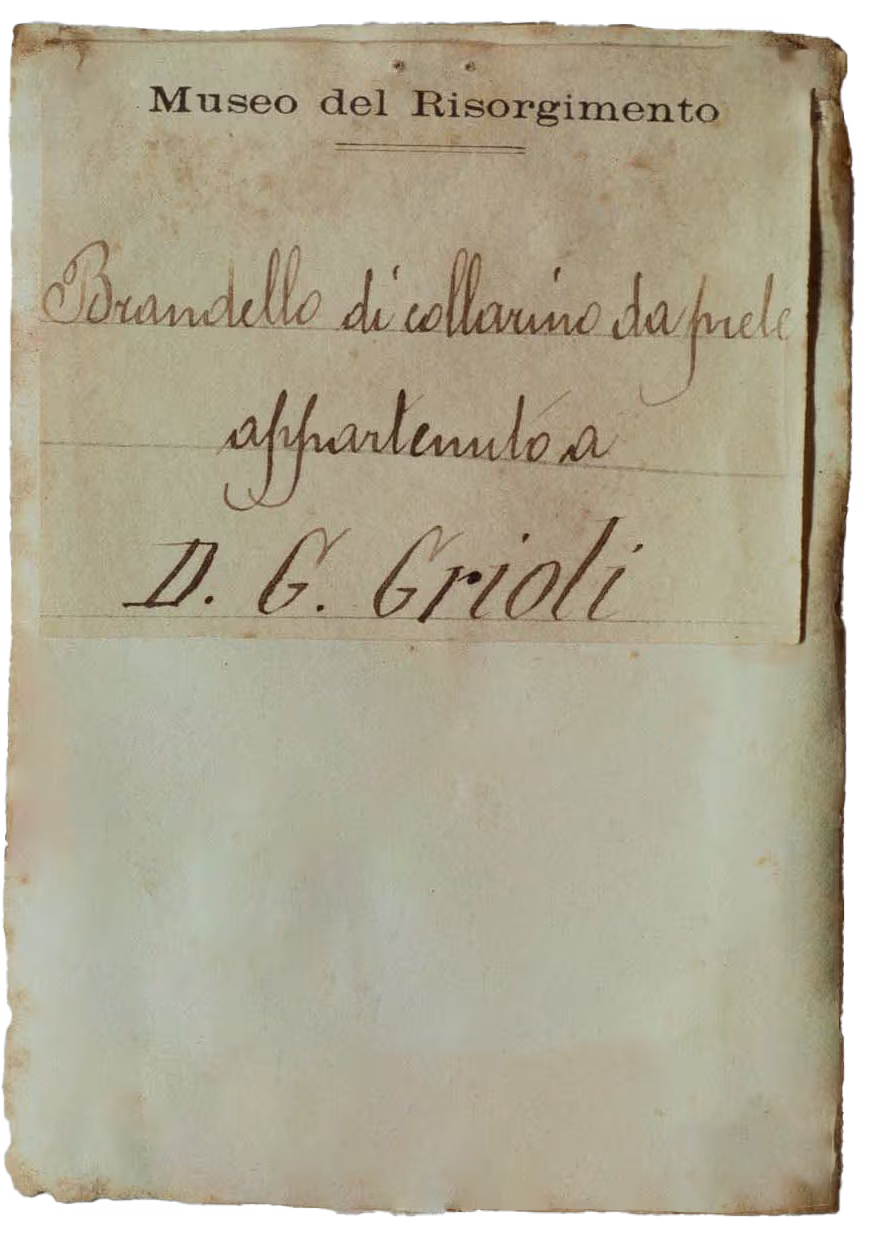 Museo del Risorgimento
Brandello di collarino da prete
appartenuto a
D. G. Grioli